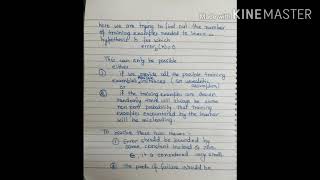 Made with
KINEMASTER
here we are trying to find out the number
of training examples needed to learn a
hypothesis h for which
error_D(h)=0
This can only be possible
either
① if we provide all the possible training
examples instances (an unrealistic
or assumption)
② if the training examples are drawn
randomly there will always be some
non zero probability that training
examples encountered by the learner
will be misleading.
To resolve these two issues:
① Error should be bounded by
some constant instead of zero.
considered very small.
② The prob of failure should be